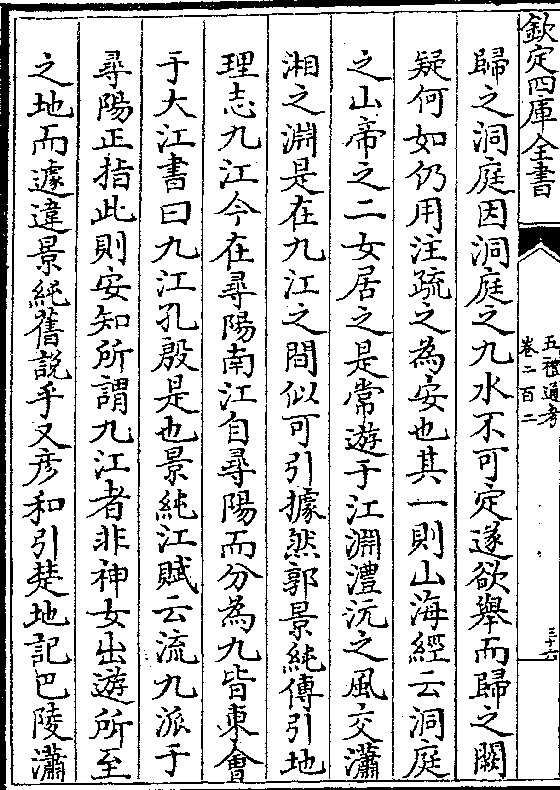 欽定四庫全書
五禮通考
卷二百二
三十六
歸之洞庭因洞庭之九水不可定遂欲舉而歸之闕
疑何如仍用注疏之為安也其一則山海經云洞庭
之山帝之二女居之是常遊于江淵澧沅之風交瀟
湘之淵是在九江之間似可引據然郭景純傳引地
理志九江今在尋陽南江自尋陽而分為九皆東會
于大江書曰九江孔殷是也景純江賦云流九派于
尋陽正指此則安知所謂九江者非神女出遊所至
之地而遽違景純舊說乎又彦和引楚地記巴陵瀟